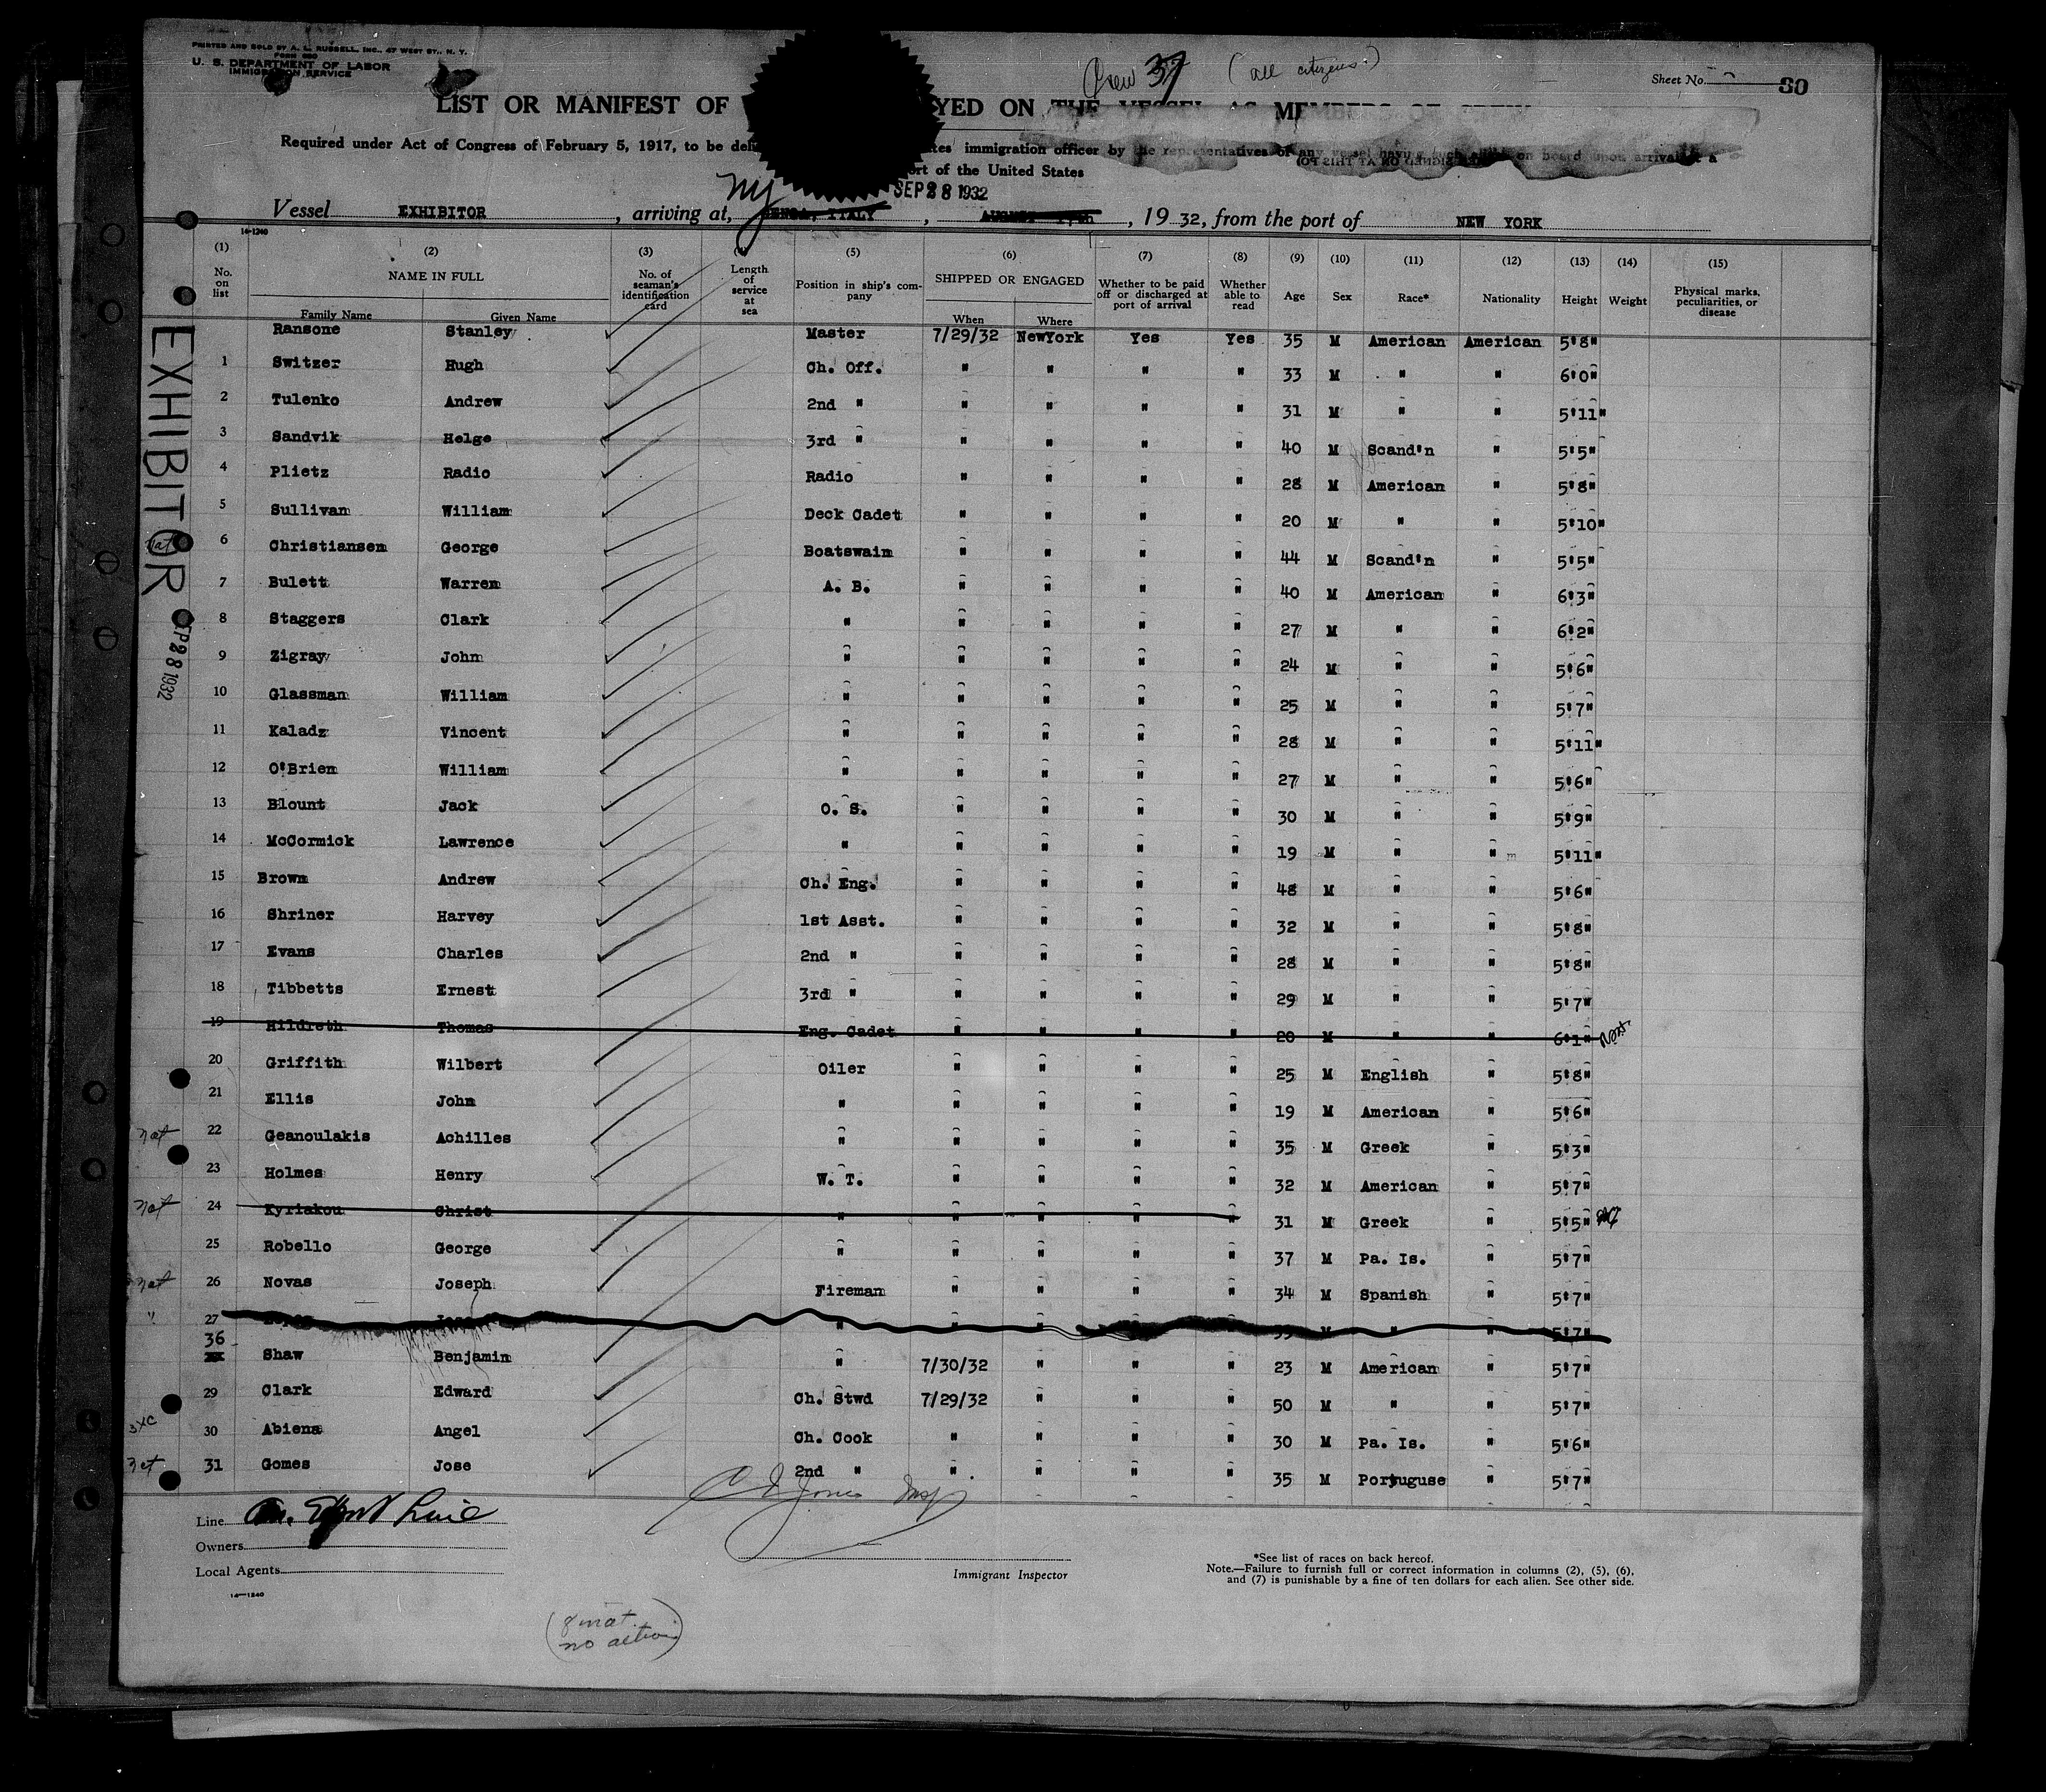 PRINTED AND SOLD BY A. L. RUSSELL, INC., 47 WEST ST., N. Y.
U. S. DEPARTMENT OF LABOR
IMMIGRATION SERVICE
Crew 37 (all citizens)
Sheet No. 80
LIST OR MANIFEST OF YED ON THE VESSEL AS MEMBERS OF CREW
Required under Act of Congress of February 5, 1917, to be deli tes immigration officer by the representatives of any vessel having such on board upon arrival at a
ort of the United States
NY SEP 28 1932
Vessel EXHIBITOR, arriving at, GENOA, ITALY, AUGUST 17th, 19 32, from the port of NEW YORK
14-1240
(1) (2) (3) (4) (5) (6) (7) (8) (9) (10) (11) (12) (13) (14) (15)
No. on list NAME IN FULL No. of seaman's identification card Length of service at sea Position in ship's company SHIPPED OR ENGAGED Whether to be paid off or discharged at port of arrival Whether able to read Age Sex Race* Nationality Height Weight Physical marks, peculiarities, or disease
Family Name Given Name When Where
Ransone Stanley Master 7/29/32 NewYork Yes Yes 35 M American American 5'8"
1 Switzer Hugh Ch. Off. " " " " 33 M " " 6'0"
2 Tulenko Andrew 2nd " " " " " 31 M " " 5'11"
3 Sandvik Helge 3rd " " " " " 40 M Scand'n " 5'5"
4 Plietz Radio Radio " " " " 28 M American " 5'8"
5 Sullivan William Deck Cadet " " " " 20 M " " 5'10"
Nat 6 Christiansen George Boatswain " " " " 44 M Scand'n " 5'5"
7 Bulett Warren A. B. " " " " 40 M American " 6'3"
8 Staggers Clark " " " " " 27 M " " 6'2"
9 Zigray John " " " " " 24 M " " 5'6"
10 Glassman William " " " " " 25 M " " 5'7"
11 Kaladz Vincent " " " " " 28 M " " 5'11"
12 O'Brien William " " " " " 27 M " " 5'6"
13 Blount Jack O. S. " " " " 30 M " " 5'9"
14 McCormick Lawrence " " " " " 19 M " " 5'11"
15 Brown Andrew Ch. Eng. " " " " 48 M " " 5'6"
16 Shriner Harvey 1st Asst. " " " " 32 M " " 5'8"
17 Evans Charles 2nd " " " " " 28 M " " 5'8"
18 Tibbetts Ernest 3rd " " " " " 29 M " " 5'7"
19 Hildreth Thomas Eng. Cadet " " " " 20 M " " 6'1"
20 Griffith Wilbert Oiler " " " " 25 M English " 5'8"
21 Ellis John " " " " " 19 M American " 5'6"
Nat 22 Geanoulakis Achilles " " " " " 35 M Greek " 5'3"
23 Holmes Henry W. T. " " " " 32 M American " 5'7"
Nat 24 Kyriakou Christ " " " " " 31 M Greek " 5'5"
25 Robello George " " " " " 37 M Pa. Is. " 5'7"
Nat 26 Novas Joseph Fireman " " " " 34 M Spanish " 5'7"
" 27 " " " " 39 M " " 5'7"
36 Shaw Benjamin " 7/30/32 " " " 23 M American " 5'7"
29 Clark Edward Ch. Stwd 7/29/32 " " " 50 M " " 5'7"
30 Abiena Angel Ch. Cook " " " " 30 M Pa. Is. " 5'6"
Nat 31 Gomes Jose 2nd " " " " " 35 M Portuguse " 5'7"
EXHIBITOR
SEP 28 1932
Line Am. Export Line
Owners
Local Agents
14-1240
Jones Insp
Immigrant Inspector
*See list of races on back hereof.
Note.—Failure to furnish full or correct information in columns (2), (5), (6),
and (7) is punishable by a fine of ten dollars for each alien. See other side.
(8 nat.
no action)